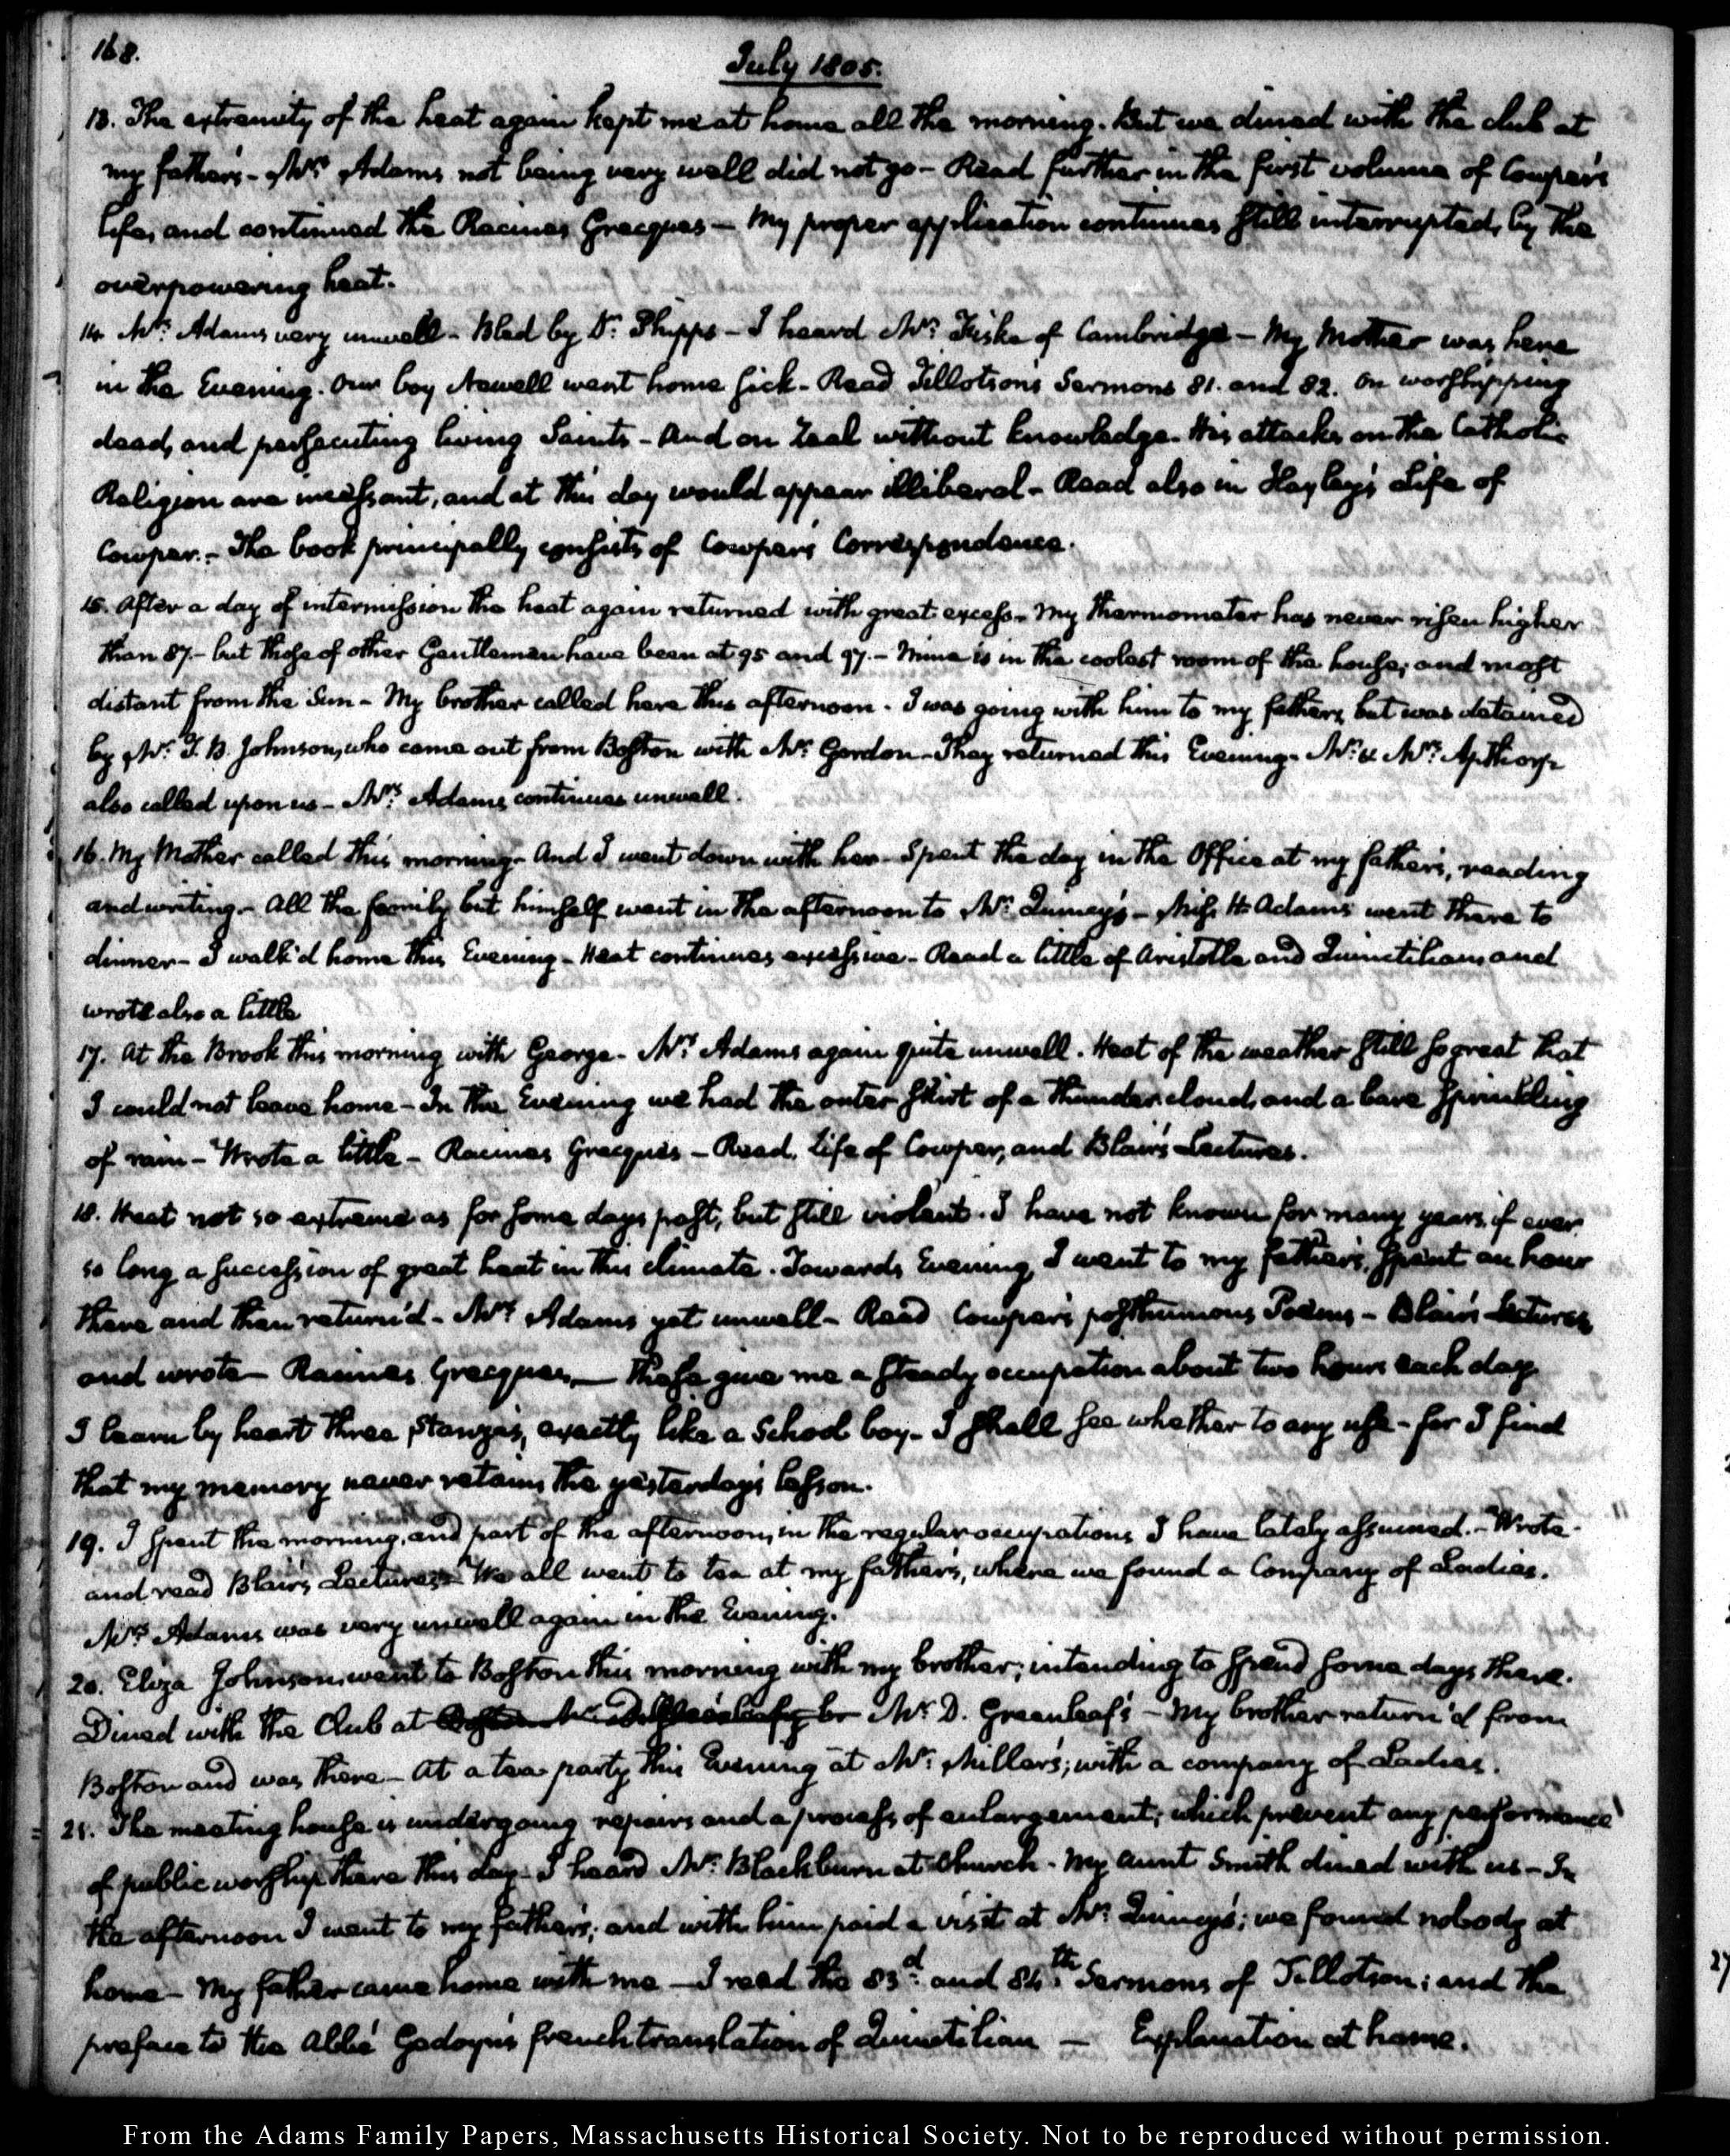 168.
July 1805.
13. The extremity of the heat again kept me at home all the morning. But we dined with the club at
my father's - Mrs Adams not being very well did not go - Read further in the first volume of Cowper's
life, and continued the Racines Grecques - My proper application continues still interrupted, by the
overpowering heat.
14. Mrs. Adams very unwell - Bled by Dr. Phipps - I heard Mr. Fiske of Cambridge - My Mother was here
in the Evening. Our boy Newell went home sick - Read Tillotson's Sermons 81. and 82. On worshipping
dead, and persecuting living Saints - And on Zeal without knowledge. His attacks on the Catholic
Religion are incessant, and at this day would appear illiberal - Read also in Hayley's Life of
Cowper. - The book principally consists of Cowper's Correspondence.
15. After a day of intermission the heat again returned with great excess - My Thermometer has never risen higher
than 87. - but those of other Gentlemen have been at 95 and 97. - Mine is in the coolest room of the house, and most
distant from the Sun - My brother called here this afternoon. I was going with him to my fathers, but was detained
by Mr. T. B. Johnson, who came out from Boston with Mr. Gordon - They returned this Evening - Mr. & Mrs. Apthorp
also called upon us - Mrs. Adams continues unwell.
16. My Mother called this morning - And I went down with her - Spent the day in the Office at my father's, reading
and writing. - All the family but himself went in the afternoon to Mr. Quincy's - Miss H. Adams went there to
dinner - I walk'd home this Evening - Heat continues excessive - Read a little of Aristotle and Quinctilian, and
wrote also a little
17. At the Brook this morning with George - Mrs. Adams again quite unwell. Heat of the weather still so great that
I could not leave home - In the Evening we had the outer skirt of a thunder cloud, and a bare sprinkling
of rain - Wrote a little - Racines Grecques - Read, Life of Cowper, and Blair's Lectures.
18. Heat not so extreme as for some days past, but still violent. I have not known for many years, if ever
so long a succession of great heat in this climate. Towards Evening, I went to my father's, spent an hour
there and then return'd - Mrs. Adams yet unwell - Read Cowper's posthumous Poems - Blair's Lectures,
and wrote - Racines Grecques, — These give me a steady occupation about two hours each day
I learn by heart three stanzas, exactly like a School boy - I shall see whether to any use - for I find
that my memory never retains the yesterday's lesson.
19. I spent the morning, and part of the afternoon, in the regular occupations I have lately assumed. - Wrote -
and read Blair's Lectures - We all went to tea at my father's, where we found a Company of Ladies.
Mrs Adams was very unwell again in the Evening.
20. Eliza Johnson went to Boston this morning with my brother; intending to spend some days there.
Dined with the Club at Mr. D. Greenleaf's - My brother return'd from
Boston and was there - At a tea party this Evening at Mr. Miller's; with a company of Ladies.
21. The meeting house is undergoing repairs and a process of enlargement; which prevent any performance
of public worship there this day - I heard Mr. Blackburn at Church - My aunt Smith dined with us - In
the afternoon I went to my father's; and with him paid a visit at Mr. Quincy's; we found nobody at
home - My father came home with me - I read the 83d. and 84th. Sermons of Tillotson; and the
preface to the Abbé Gedoyn's french translation of Quinctilian — Explanation at home.
From the Adams Family Papers, Massachusetts Historical Society. Not to be reproduced without permission.